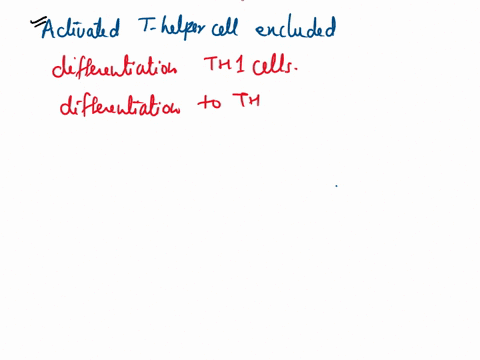 Activated T-helper cell excluded
differentiation TH1 cells.
differentiation to TH